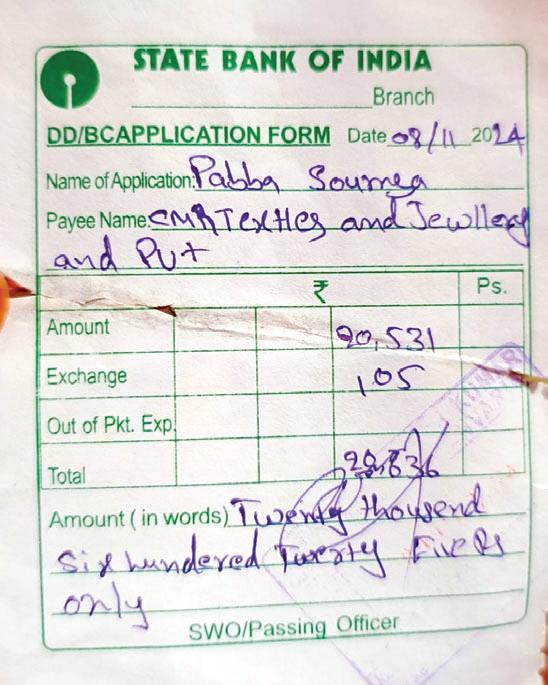 STATE BANK OF INDIA
Branch
DD/BCAPPLICATION FORM Date 08/11 2024
Name of Application: Pabba Soumya
Payee Name. CMR Textles and Jewllery
and Pvt
₹ Ps.
Amount 20,531
Exchange ,105
Out of Pkt. Exp.
Total 20,636
Amount ( in words) Twenty thousend
six hundered Twenty Five Rs
only
SWO/Passing Officer